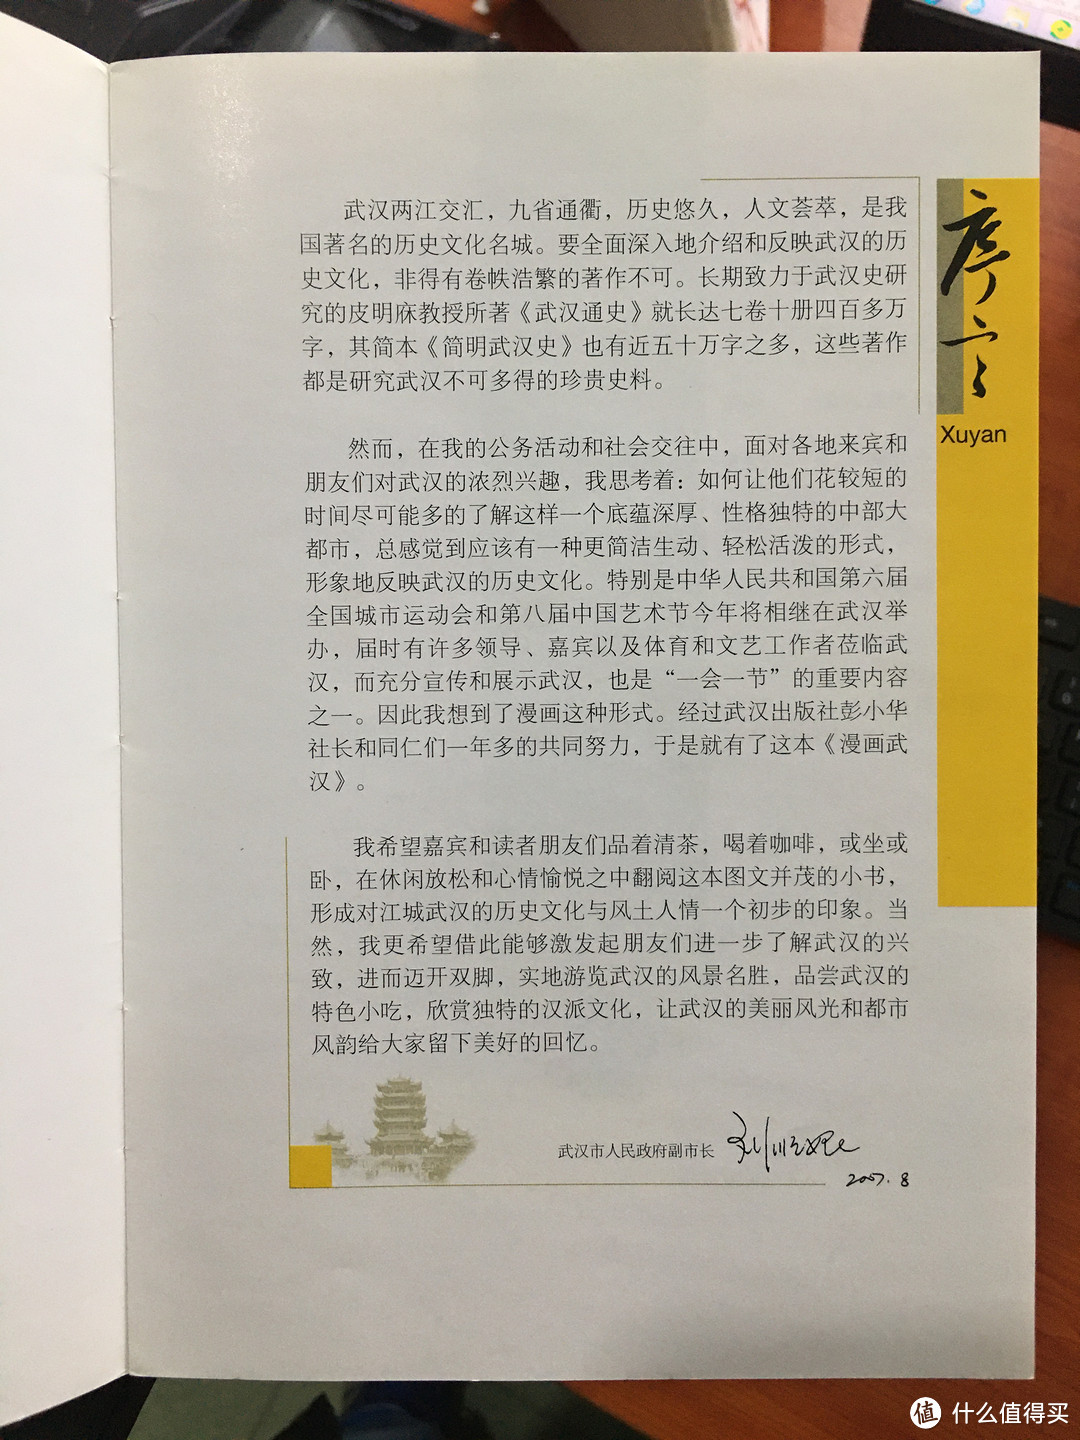 序言
Xuyan
武汉两江交汇，九省通衢，历史悠久，人文荟萃，是我
国著名的历史文化名城。要全面深入地介绍和反映武汉的历
史文化，非得有卷帙浩繁的著作不可。长期致力于武汉史研
究的皮明庥教授所著《武汉通史》就长达七卷十册四百多万
字，其简本《简明武汉史》也有近五十万字之多，这些著作
都是研究武汉不可多得的珍贵史料。
然而，在我的公务活动和社会交往中，面对各地来宾和
朋友们对武汉的浓烈兴趣，我思考着：如何让他们花较短的
时间尽可能多的了解这样一个底蕴深厚、性格独特的中部大
都市，总感觉到应该有一种更简洁生动、轻松活泼的形式，
形象地反映武汉的历史文化。特别是中华人民共和国第六届
全国城市运动会和第八届中国艺术节今年将相继在武汉举
办，届时有许多领导、嘉宾以及体育和文艺工作者莅临武
汉，而充分宣传和展示武汉，也是“一会一节”的重要内容
之一。因此我想到了漫画这种形式。经过武汉出版社彭小华
社长和同仁们一年多的共同努力，于是就有了这本《漫画武
汉》。
我希望嘉宾和读者朋友们品着清茶，喝着咖啡，或坐或
卧，在休闲放松和心情愉悦之中翻阅这本图文并茂的小书，
形成对江城武汉的历史文化与风土人情一个初步的印象。当
然，我更希望借此能够激发起朋友们进一步了解武汉的兴
致，进而迈开双脚，实地游览武汉的风景名胜，品尝武汉的
特色小吃，欣赏独特的汉派文化，让武汉的美丽风光和都市
风韵给大家留下美好的回忆。
武汉市人民政府副市长
2007.8
值 什么值得买